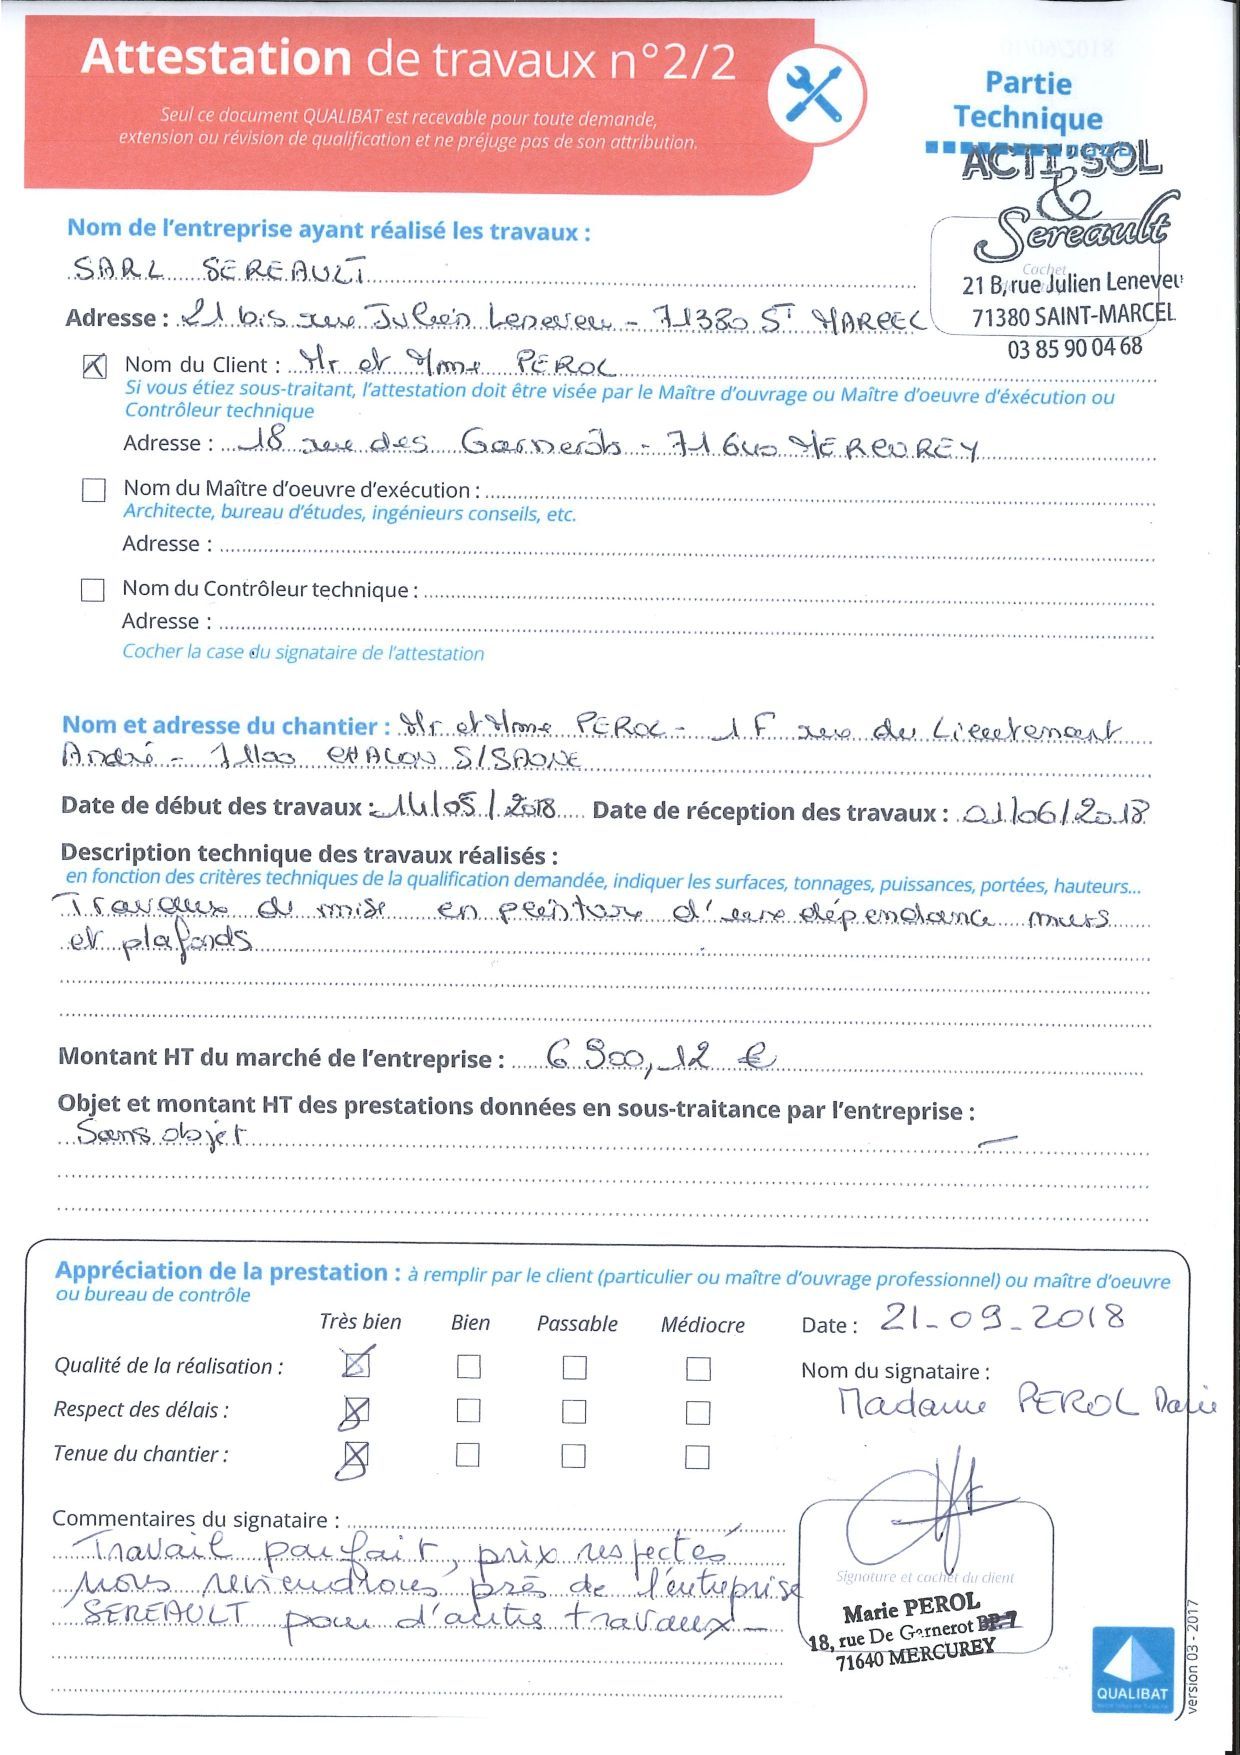 Attestation de travaux n°2/2
Seul ce document QUALIBAT est recevable pour toute demande,
extension ou révision de qualification et ne préjuge pas de son attribution.
Partie
Technique
ACTI'SOL
&
Sereault
Cachet
21 B, rue Julien Leneveu
71380 SAINT-MARCEL
03 85 90 04 68
Nom de l'entreprise ayant réalisé les travaux :
SARL SEREAULT
Adresse : 21 bis rue Julien Leneveu - 71380 St MARCEL
Nom du Client : Mr et Mme PEROL
Si vous étiez sous-traitant, l'attestation doit être visée par le Maître d'ouvrage ou Maître d'oeuvre d'éxécution ou
Contrôleur technique
Adresse : 18 rue des Garnerots - 71640 MERCUREY
Nom du Maître d'oeuvre d'exécution :
Architecte, bureau d'études, ingénieurs conseils, etc.
Adresse :
Nom du Contrôleur technique :
Adresse :
Cocher la case du signataire de l'attestation
Nom et adresse du chantier : Mr et Mme PEROL - 1 F rue du Lieutenant
André - 71100 CHALON S/SAONE
Date de début des travaux : 14/05/2018 Date de réception des travaux : 01/06/2018
Description technique des travaux réalisés :
en fonction des critères techniques de la qualification demandée, indiquer les surfaces, tonnages, puissances, portées, hauteurs...
Travaux de mise en peinture d'une dépendance murs
et plafonds
Montant HT du marché de l'entreprise : 6 900,12 €
Objet et montant HT des prestations données en sous-traitance par l'entreprise :
Sans objet —
Appréciation de la prestation : à remplir par le client (particulier ou maître d'ouvrage professionnel) ou maître d'oeuvre
ou bureau de contrôle
Très bien Bien Passable Médiocre
Date : 21-09-2018
Qualité de la réalisation :
Nom du signataire :
Madame PEROL
Respect des délais :
Tenue du chantier :
Commentaires du signataire :
Travail parfait, prix respectés
nous reviendrons près de l'entreprise
SEREAULT pour d'autres travaux -
Signature et cachet du client
Marie PEROL
18, rue De Garnerot BP.7
71640 MERCUREY
QUALIBAT
version 03 - 2017